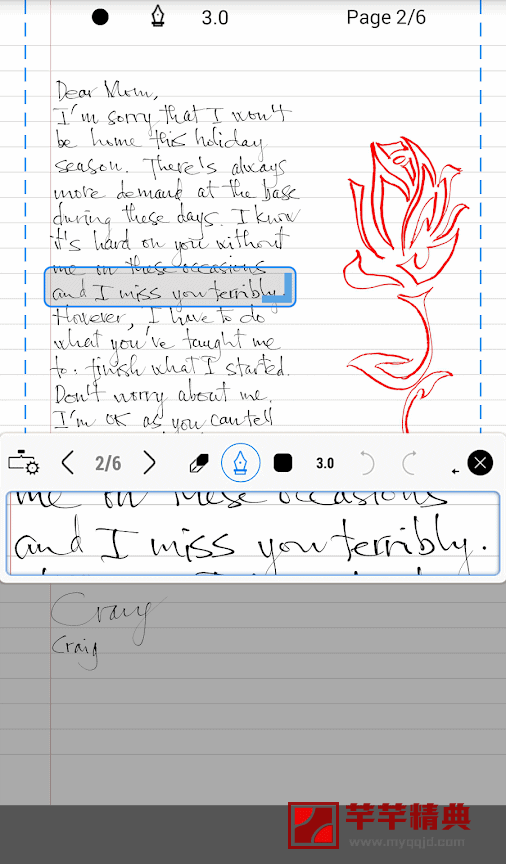 3.0 Page 2/6
Dear Mom,
I'm sorry that I won't
be home this holiday
season. There's always
more demand at the base
during these days. I know
it's hard on you without
me on these occasions
and I miss you terribly.
However, I have to do
what you've taught me
to. finish what I started.
Don't worry about me.
I'm OK as you can tell
2/6 3.0
me on these occasions
and I miss you terribly.
Craig
Craig
芊芊精典
www.myqqjd.com